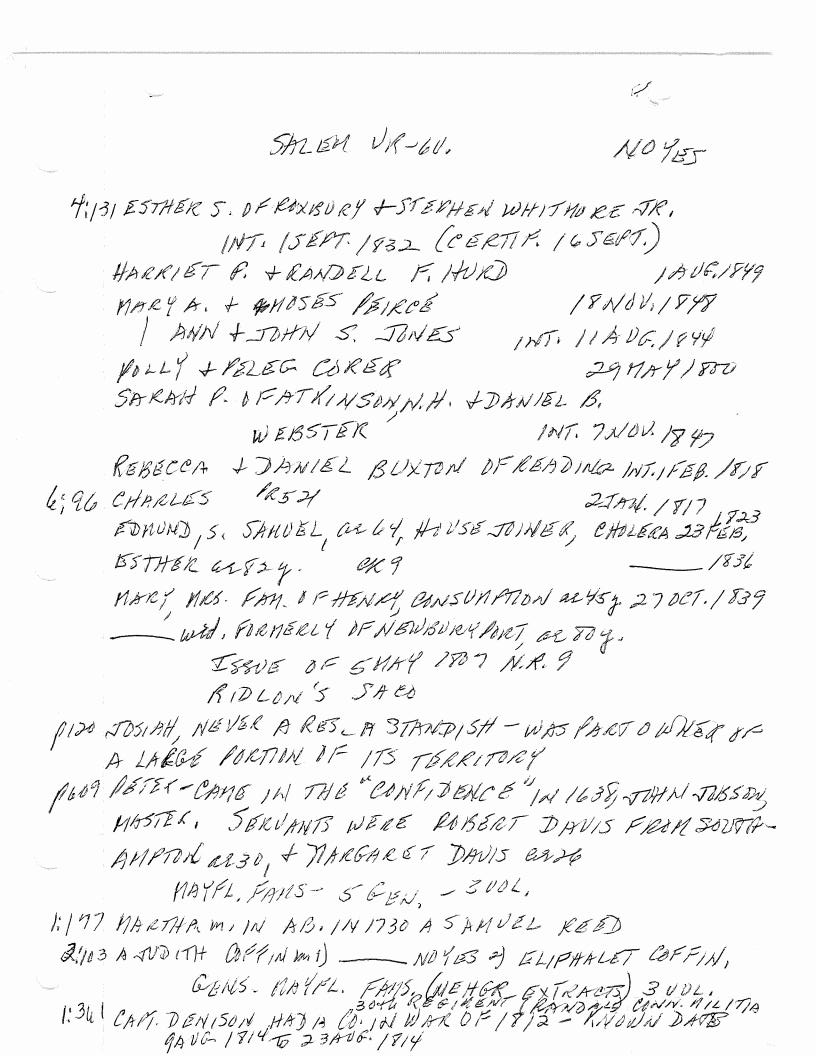 SALEM VR-6V. NOYES
4:131 ESTHER S. OF ROXBURY + STEPHEN WHITMORE JR.
INT. 1 SEPT. 1832 (CERTIF. 16 SEPT.)
HARRIET P. + RANDELL F. HURD 1 AUG. 1849
MARY A. + MOSES PEIRCE 18 NOV. 1848
| ANN + JOHN S. JONES INT. 11 AUG. 1844
POLLY + PELEG CORER 29 MAY 1800
SARAH P. OF ATKINSON, N.H. + DANIEL B.
WEBSTER INT. 7 NOV. 1847
REBECCA + DANIEL BUXTON OF READING INT. 1 FEB. 1818
6:96 CHARLES PR521 2 JAN. 1817
EDMUND, S. SAMUEL, ae 64, HOUSE JOINER, CHOLERA 23 FEB. 1823
ESTHER ae 82 y. CR9 ____ 1836
MARY, MRS. FAM. OF HENRY, CONSUMPTION ae 45 y. 27 OCT. 1839
____ wid. FORMERLY OF NEWBURYPORT, ae 80 y.
ISSUE OF 5 MAY 1807 N.R. 9
RIDLON'S SACO
p120 JOSIAH, NEVER A RES. STANDISH - WAS PART OWNER OF
A LARGE PORTION OF ITS TERRITORY
p609 PETER - CAME IN THE "CONFIDENCE" IN 1638, JOHN JOBSON,
MASTER. SERVANTS WERE ROBERT DAVIS FROM SOUTH-
AMPTON ae 30, + MARGARET DAVIS ae 26
MAYFL. FAMS - 5 GEN. - 3 VOL.
1:177 MARTHA m. IN AB. IN 1730 A SAMUEL REED
2:103 A JUDITH COFFIN m 1) ____ NOYES 2) ELIPHALET COFFIN.
GENS. MAYFL. FAMS. (NEHGR EXTRACTS) 3 VOL.
30th REGIMENT (RANDALL'S CONN. MILITIA
1:361 CAPT. DENISON HAD A CO. IN WAR OF 1812 - KNOWN DATES
9 AUG. 1814 TO 23 AUG. 1814